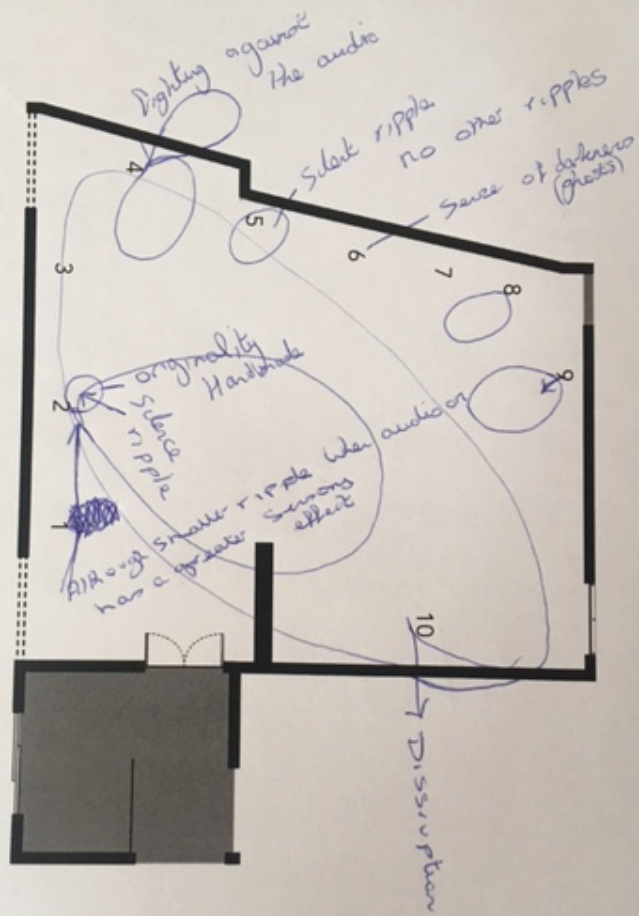 Fighting against
the audio
Silent ripple
no other ripples
Sense of darkness
(ghosts)
4
5
6
7
8
9
3
2
1
10
originality
Handmade
Silence
ripple
Although smaller ripple when audio on
has a greater sensory
effect
Dissruption